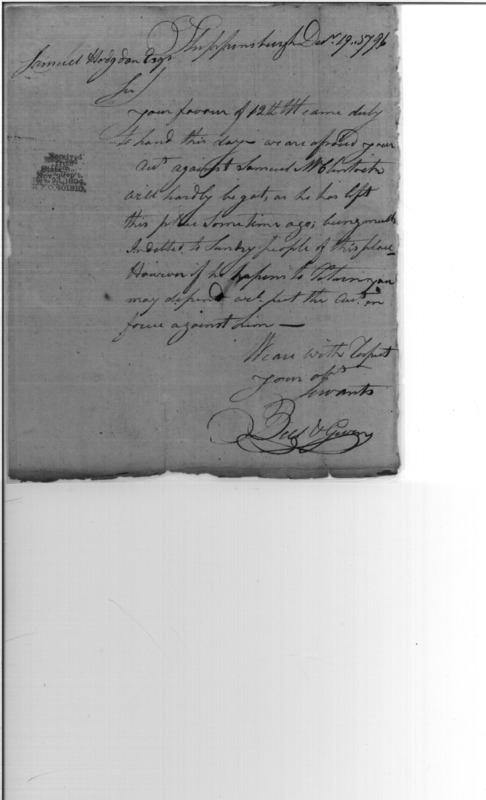 Shippensburgh Decr. 19.. 1796
Samuel Hodgdon Esqr
Sir
your favour of 12th Int came duly
to hand this day we are afraid your
acct against Samuel McClintock
will hardly be got, as he has left
this place sometime ago; being much
Indebted to Sundry people of this place
However if he hapens to Return you
may depend we'l put the acct in
force against him —
We are with Respect
your obt
Servants